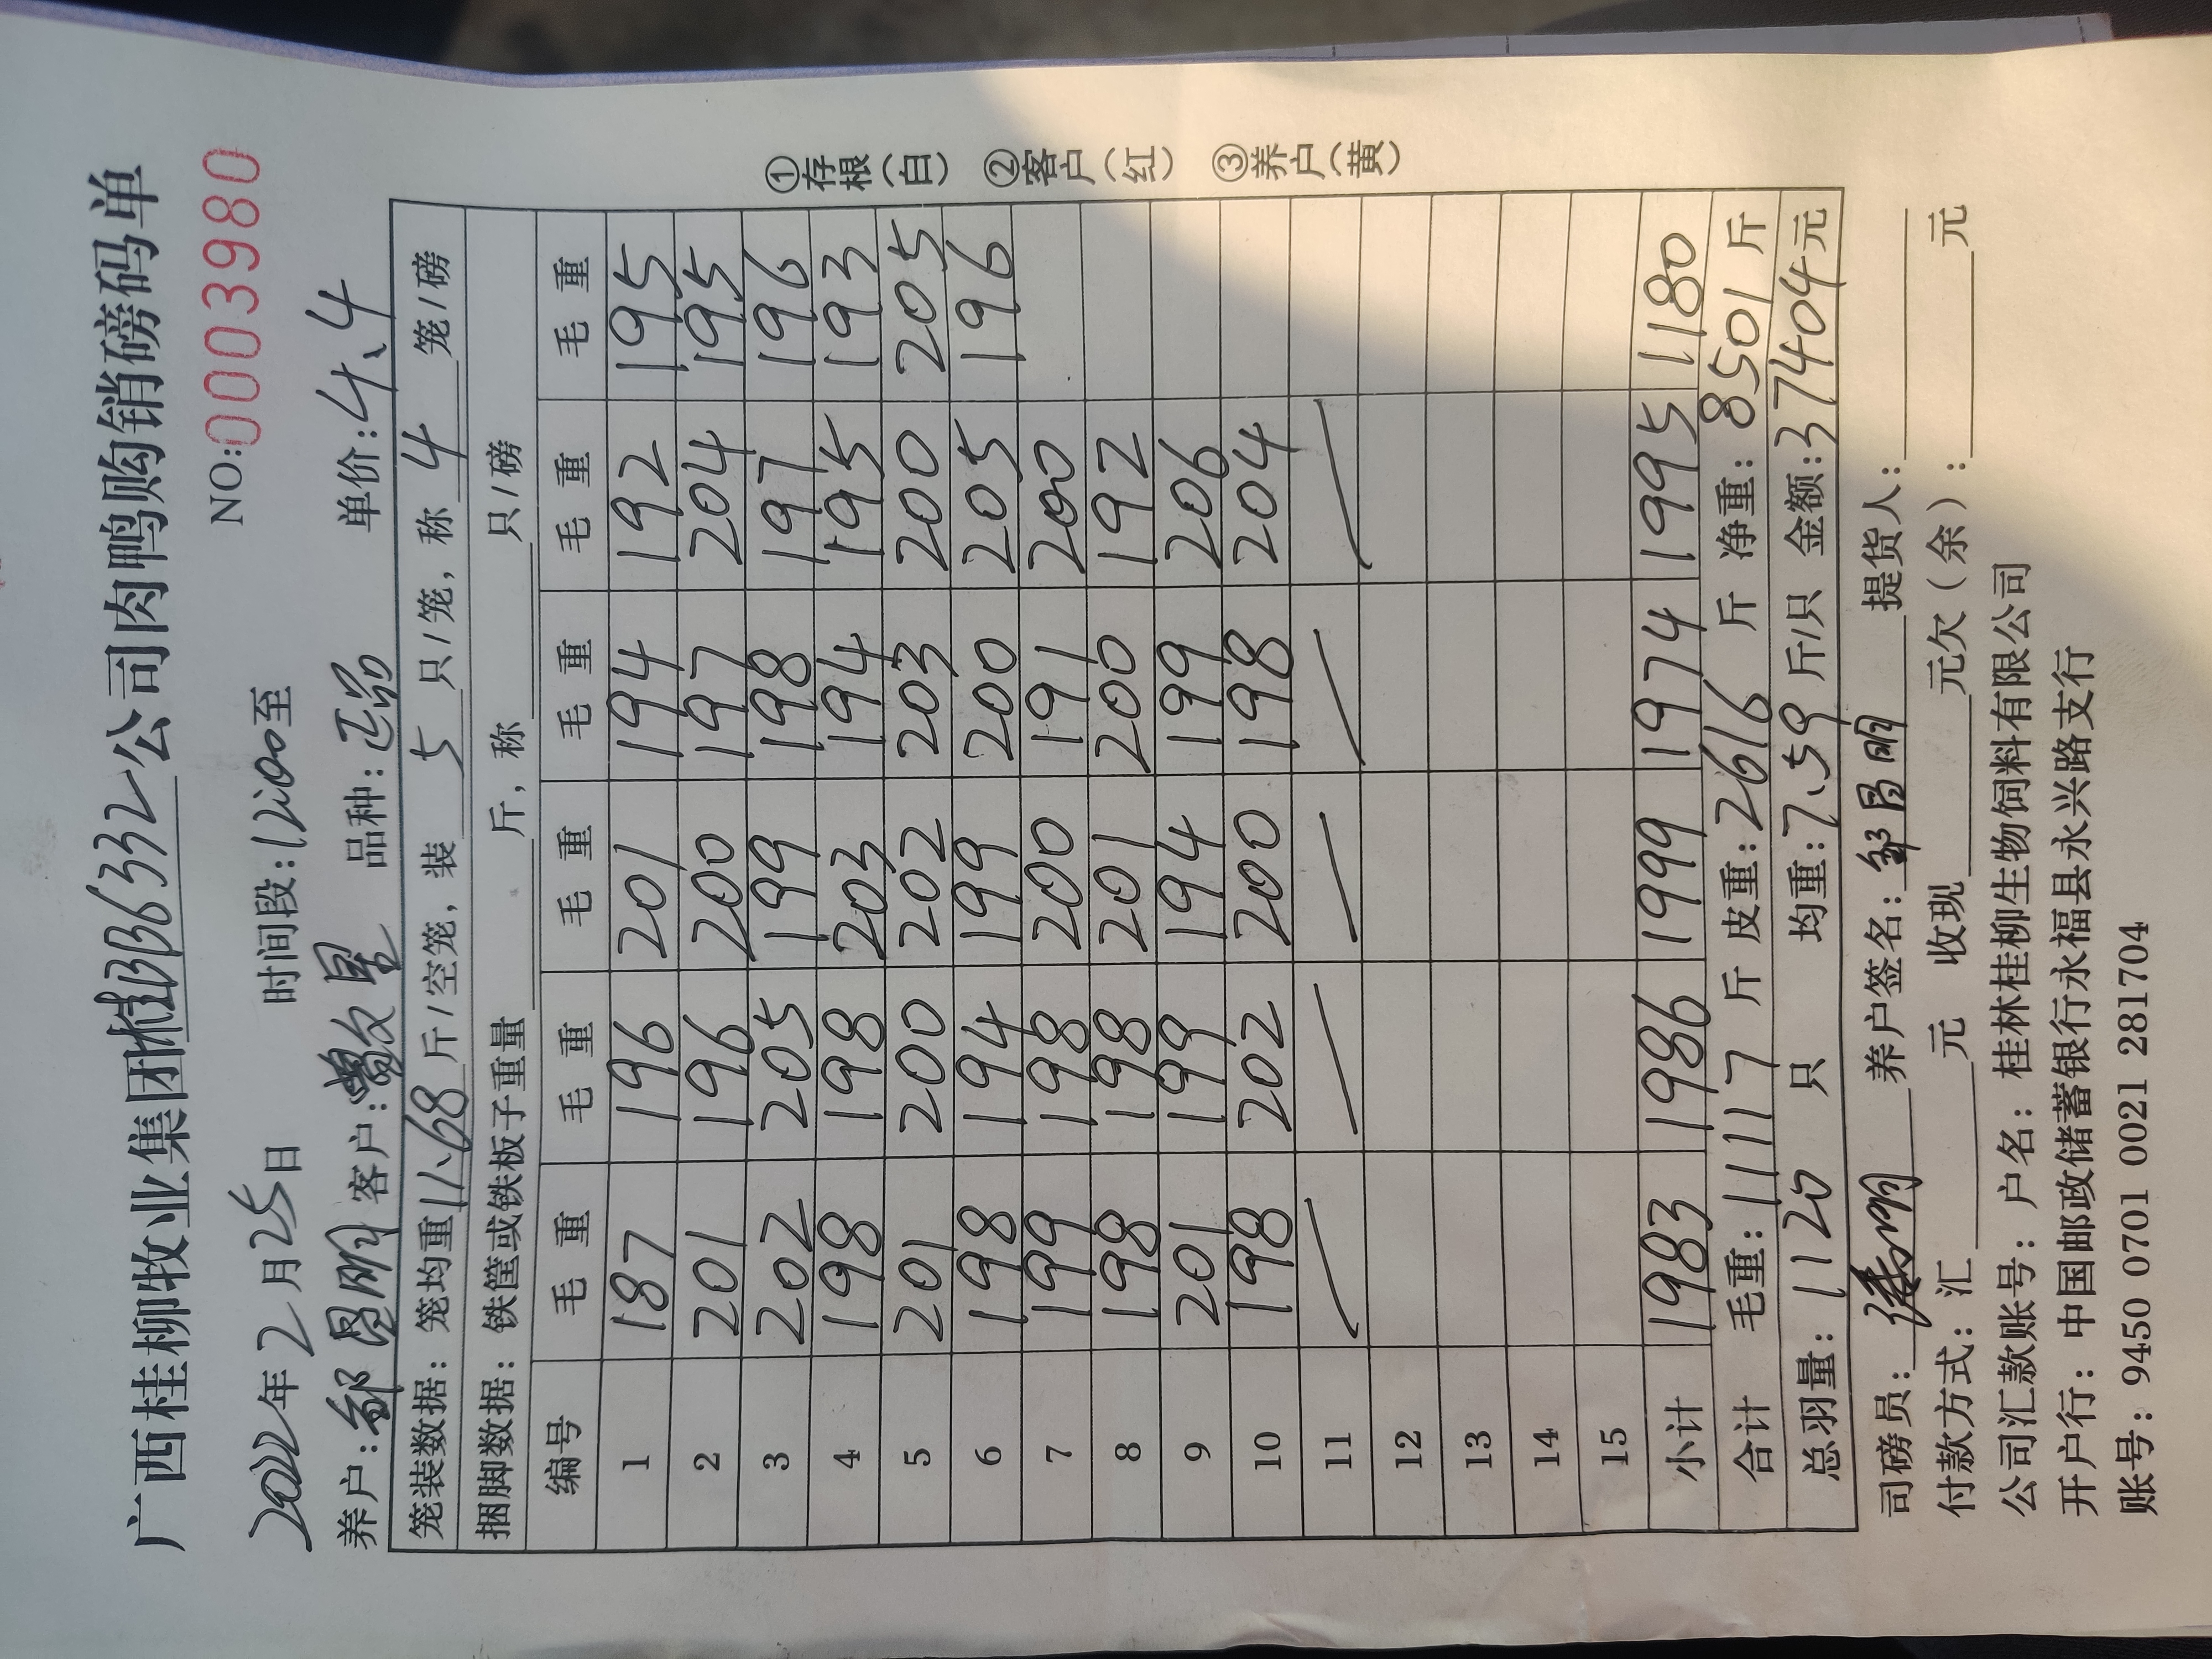 广西桂柳牧业集团桂B B6332公司肉鸭购销磅码单
NO:0003980
2022年2月25日 时间段:12:00至
养户:邹昌明 客户: 品种: 单价:4.4
笼装数据:笼均重11.68斤/空笼,装5只/笼,称4笼/磅
捆脚数据:铁筐或铁板子重量 斤,称 只/磅
编号 毛重 毛重 毛重 毛重 毛重 毛重
1 187 196 201 194 192 195
2 201 196 200 197 204 195
3 202 205 199 198 197 196
4 198 198 203 194 195 193
5 201 200 202 203 200 205
6 198 194 199 200 205 196
7 199 198 200 191 200
8 198 198 201 200 192
9 201 199 194 199 206
10 198 202 200 198 204
11
12
13
14
15
小计 1983 1986 1999 1974 1995 1180
合计 毛重:11117斤 皮重:2616斤 净重:8501斤
总羽量:1120只 均重:7.59斤/只 金额:37404元
①存根(白) ②客户(红) ③养户(黄)
司磅员: 养户签名:邹昌明 提货人:
付款方式:汇 元 收现 元欠(余): 元
公司汇款账号:户名:桂林桂柳生物饲料有限公司
开户行:中国邮政储蓄银行永福县永兴路支行
账号:9450 0701 0021 281704